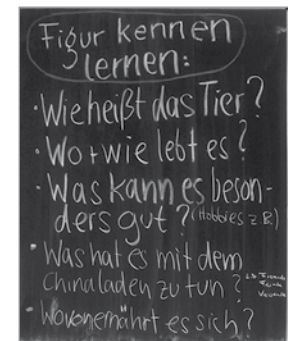 Figur kennen
lernen:
• Wie heißt das Tier?
• Wo + wie lebt es?
• Was kann es beson-
ders gut? (Hobbies z.B.)
• Was hat es mit dem
Chinaladen zu tun?
• Wovon ernährt es sich?